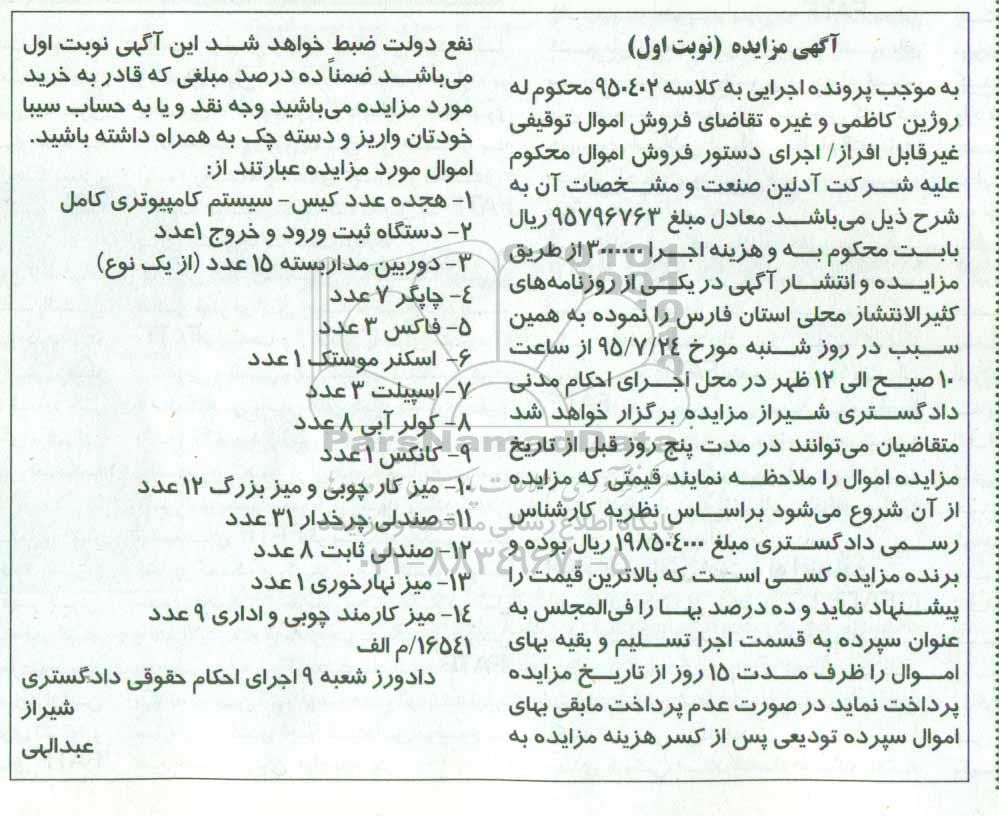 آگهی مزایده (نوبت اول)
به موجب پرونده اجرایی به کلاسه ۹۵۰۴۰۲ محکوم له
روژین کاظمی و غیره تقاضای فروش اموال توقیفی
غیرقابل افراز/ اجرای دستور فروش اموال محکوم
علیه شرکت آدنین صنعت و مشخصات آن به
شرح ذیل می‌باشد معادل مبلغ ۹۵۷۹۶۷۶۳ ریال
بابت محکوم به و هزینه اجرا از طریق
مزایده و انتشار آگهی در یکی از روزنامه‌های
کثیرالانتشار محلی استان فارس را نموده به همین
سبب در روز شنبه مورخ ۹۵/۷/۲۴ از ساعت
۱۰ صبح الی ۱۲ ظهر در محل اجرای احکام مدنی
دادگستری شیراز مزایده برگزار خواهد شد
متقاضیان می‌توانند در مدت پنج روز قبل از تاریخ
مزایده اموال را ملاحظه نمایند قیمتی که مزایده
از آن شروع می‌شود براساس نظریه کارشناس
رسمی دادگستری مبلغ ۱۹۸۵۰۴۰۰۰ ریال بوده و
برنده مزایده کسی است که بالاترین قیمت را
پیشنهاد نماید و ده درصد بها را فی‌المجلس به
عنوان سپرده به قسمت اجرا تسلیم و بقیه بهای
اموال را ظرف مدت ۱۵ روز از تاریخ مزایده
پرداخت نماید در صورت عدم پرداخت مابقی بهای
اموال سپرده تودیعی پس از کسر هزینه مزایده به
نفع دولت ضبط خواهد شد این آگهی نوبت اول
می‌باشد ضمناً ده درصد مبلغی که قادر به خرید
مورد مزایده می‌باشید وجه نقد و یا به حساب سیبا
خودتان واریز و دسته چک به همراه داشته باشید.
اموال مورد مزایده عبارتند از:
۱- هجده عدد کیس- سیستم کامپیوتری کامل
۲- دستگاه ثبت ورود و خروج ۱عدد
۳- دوربین مداربسته ۱۵ عدد (از یک نوع)
۴- چاپگر ۷ عدد
۵- فاکس ۳ عدد
۶- اسکنر موستک ۱ عدد
۷- اسپیلت ۳ عدد
۸- کولر آبی ۸ عدد
۹- کانکس ۱ عدد
۱۰- میز کار چوبی و میز بزرگ ۱۲ عدد
۱۱- صندلی چرخدار ۳۱ عدد
۱۲- صندلی ثابت ۸ عدد
۱۳- میز نهارخوری ۱ عدد
۱۴- میز کارمند چوبی و اداری ۹ عدد
۱۶۵۴۱/م الف
دادورز شعبه ۹ اجرای احکام حقوقی دادگستری
شیراز
عبدالهی
ParsNamadData
پایگاه اطلاع رسانی
۰۲۱-۸۸۳۴۹۶۷۰-۵